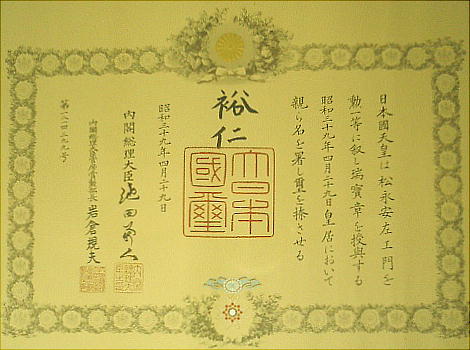 日本國天皇は松永安左エ門を
勲一等に叙し瑞寶章を授與する
昭和三十九年四月二十九日皇居において
親ら名を署し璽を捺させる
裕仁
大日本
國璽
昭和三十九年四月二十九日
内閣総理大臣池田勇人
内閣総理大臣官房賞勲部長岩倉規夫